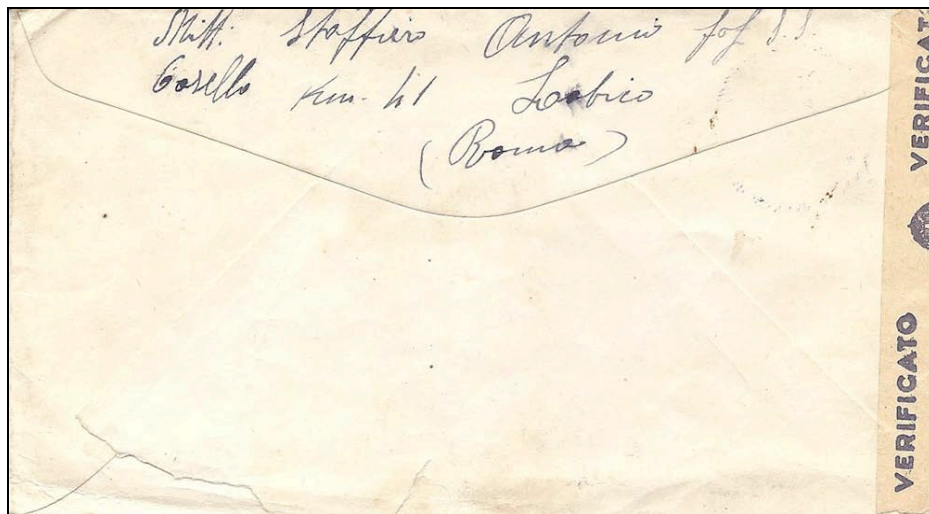 Mitt. Staffiero Antonio fof S.S.
Casello Km. 41 Labico
(Roma)
VERIFICATO
VERIFICATO